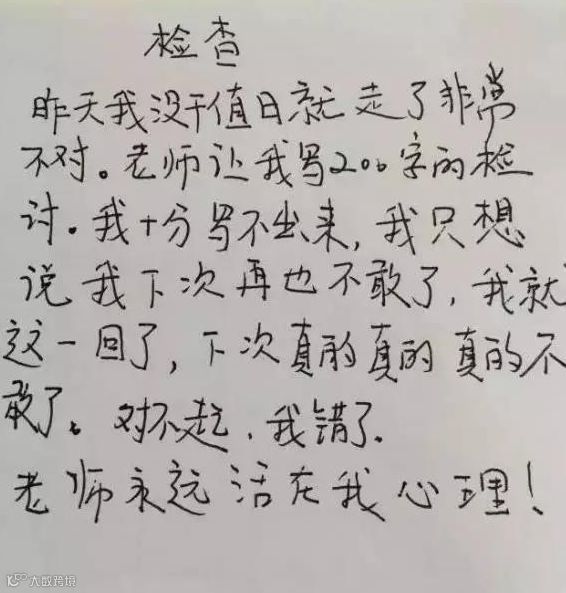 检查
昨天我没干值日就走了非常
不对。老师让我写200字的检
讨。我十分写不出来,我只想
说我下次再也不敢了,我就
这一回了,下次真的真的真的不
敢了。对不起,我错了.
老师永远活在我心理!
大数跨境